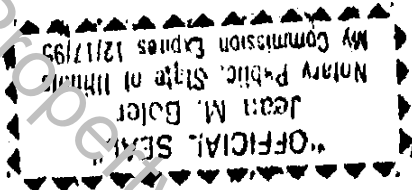 "OFFICIAL SEAL"
Jean M. Boler
Notary Public, State of Illinois
My Commission Expires 12/17/95
Propert